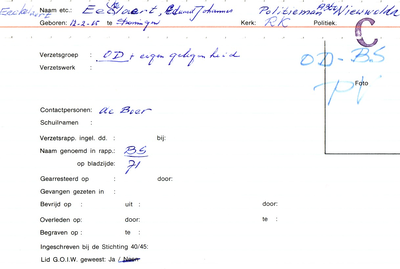 Naam etc.: Johannes Politieman
Geboren: 12-2-15 te Kerk: RK Politiek:
C
Verzetsgroep : OD + eigen gelegenheid
Verzetswerk :
OD-BS
Foto
Contactpersonen: de Boer
Schuilnamen :
Verzetsrapp. ingel. dd. : bij:
Naam genoemd in rapp.: BS
op bladzijde: 71
Gearresteerd op : door:
Gevangen gezeten in :
Bevrijd op : uit : door:
Overleden op: door: te :
Begraven op : te :
Ingeschreven bij de Stichting 40/45:
Lid G.O.I.W. geweest: Ja / Neen